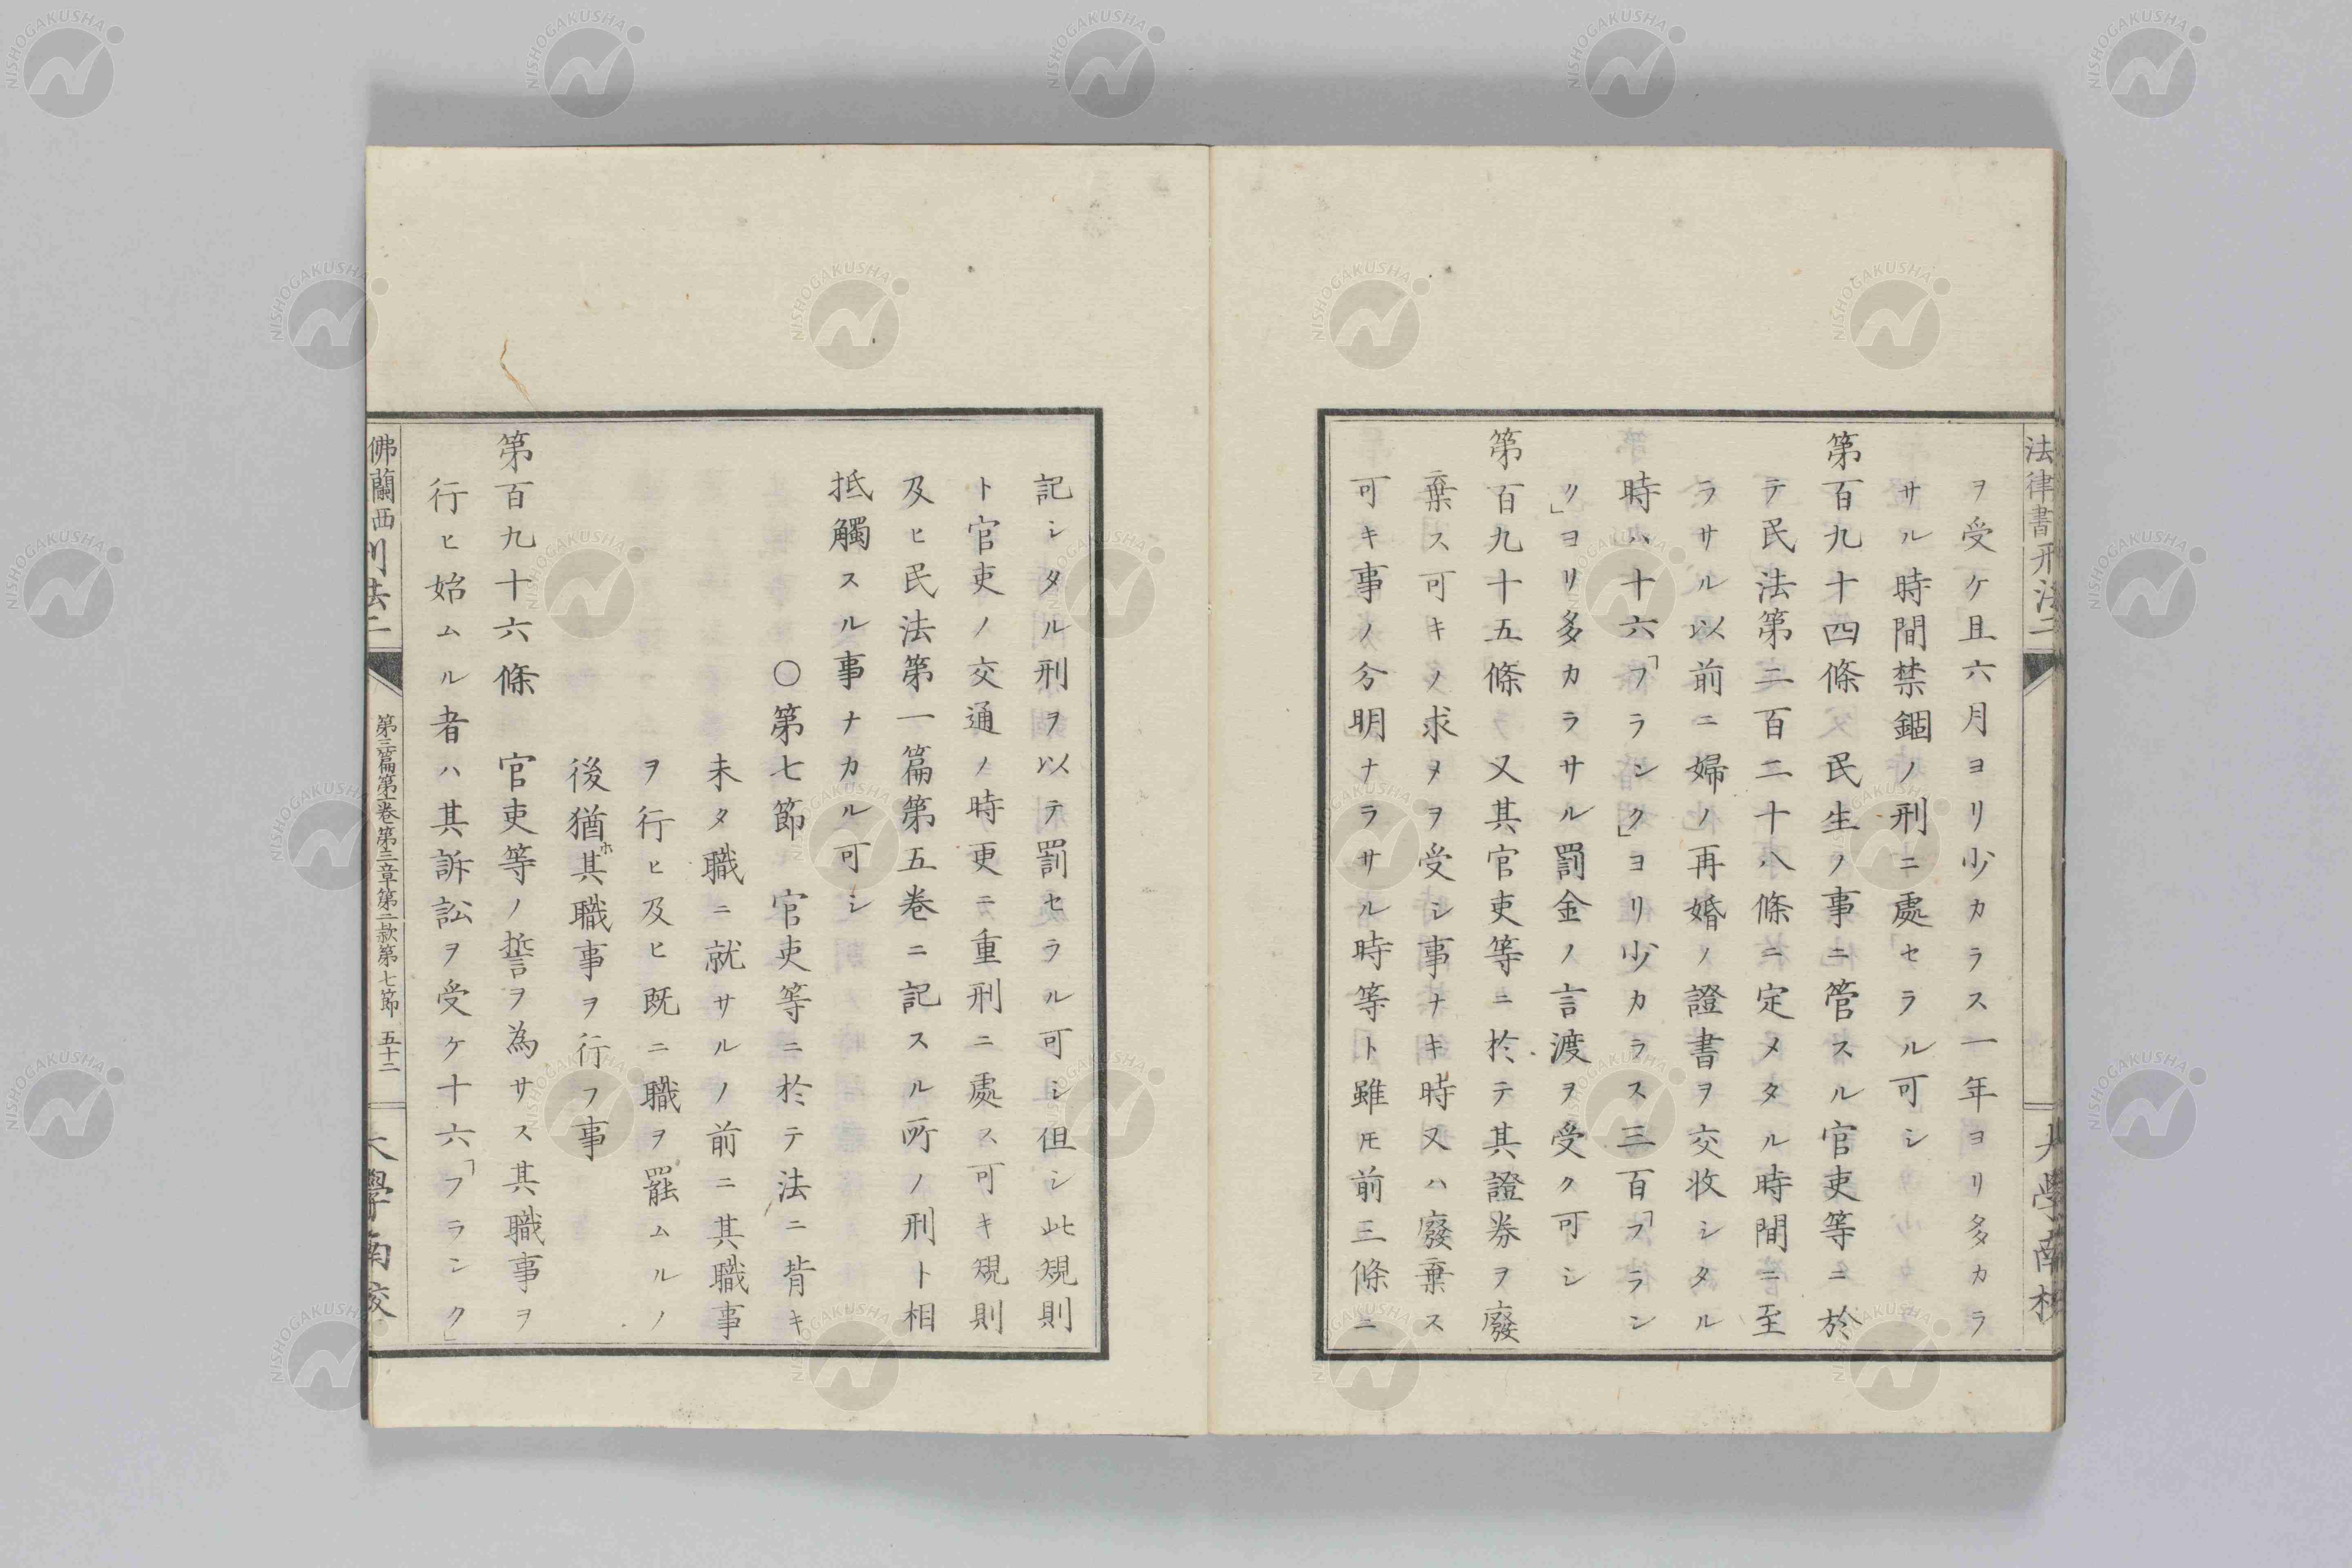 法律書刑法二
大學南校
ヲ受ケ且六月ヨリ少カラス一年ヨリ多カラ
サル時間禁錮ノ刑ニ處セラル可シ
第百九十四條 民生ノ事ニ管スル官吏等ニ於
テ民法第二百二十八條ニ定メタル時間ニ至
ラサル以前ニ婦ノ再婚ノ證書ヲ交收シタル
時ハ十六「フランク」ヨリ少カラス三百「フラン
ク」ヨリ多カラサル罰金ノ言渡ヲ受ク可シ
第百九十五條 又其官吏等ニ於テ其證券ヲ廢
棄ス可キノ求メヲ受シ事ナキ時又ハ廢棄ス
可キ事ノ分明ナラサル時等ト雖モ前三條ニ
記シタル刑ヲ以テ罰セラル可シ但シ此規則
ト官吏ノ交通ノ時更ニ重刑ニ處ス可キ規則
及ヒ民法第一篇第五巻ニ記スル所ノ刑ト相
抵觸スル事ナカル可シ
○第七節 官吏等ニ於テ法ニ背キ
未タ職ニ就サルノ前ニ其職事
ヲ行ヒ及ヒ既ニ職ヲ罷ムルノ
後猶ホ其職事ヲ行フ事
第百九十六條 官吏等ノ誓ヲ為サス其職事ヲ
行ヒ始ムル者ハ其訴訟ヲ受ケ十六「フランク」
佛蘭西刑法二
第三篇第一巻第三章第二款第七節 五十二
大學南校
NISHOGAKUSHA